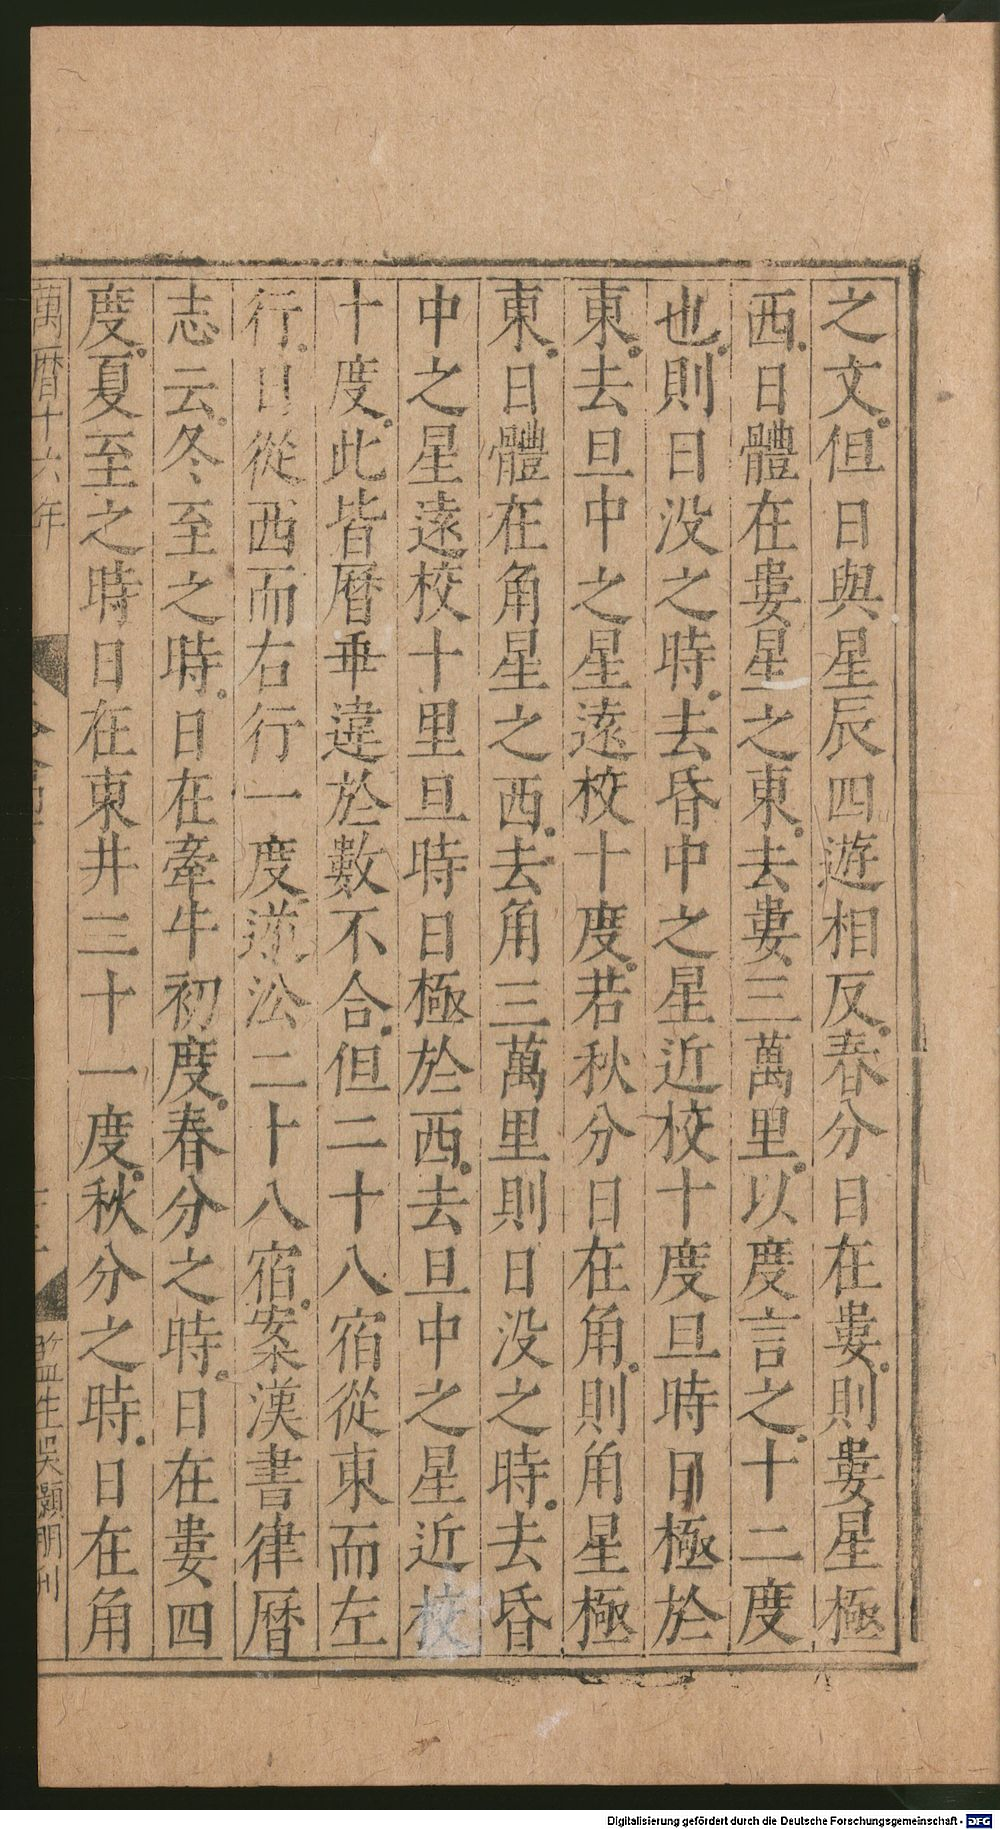 之文但日與星辰四遊相反春分日在婁則婁星極
西日體在婁星之東去婁三萬里以度言之十二度
也則日没之時去昏中之星近校十度旦時日極於
東去旦中之星遠校十度若秋分日在角則角星極
東日體在角星之西去角三萬里則日没之時去昏
中之星遠校十里旦時日極於西去旦中之星近校
十度此皆曆乖違於數不合但二十八宿從東而左
行日從西而右行一度逆㳂二十八宿案漢書律曆
志云冬至之時日在牽牛初度春分之時日在婁四
度夏至之時日在東井三十一度秋分之時日在角
萬曆十六年
監生吳顯明刊
Digitalisierung gefördert durch die Deutsche Forschungsgemeinschaft - DFG